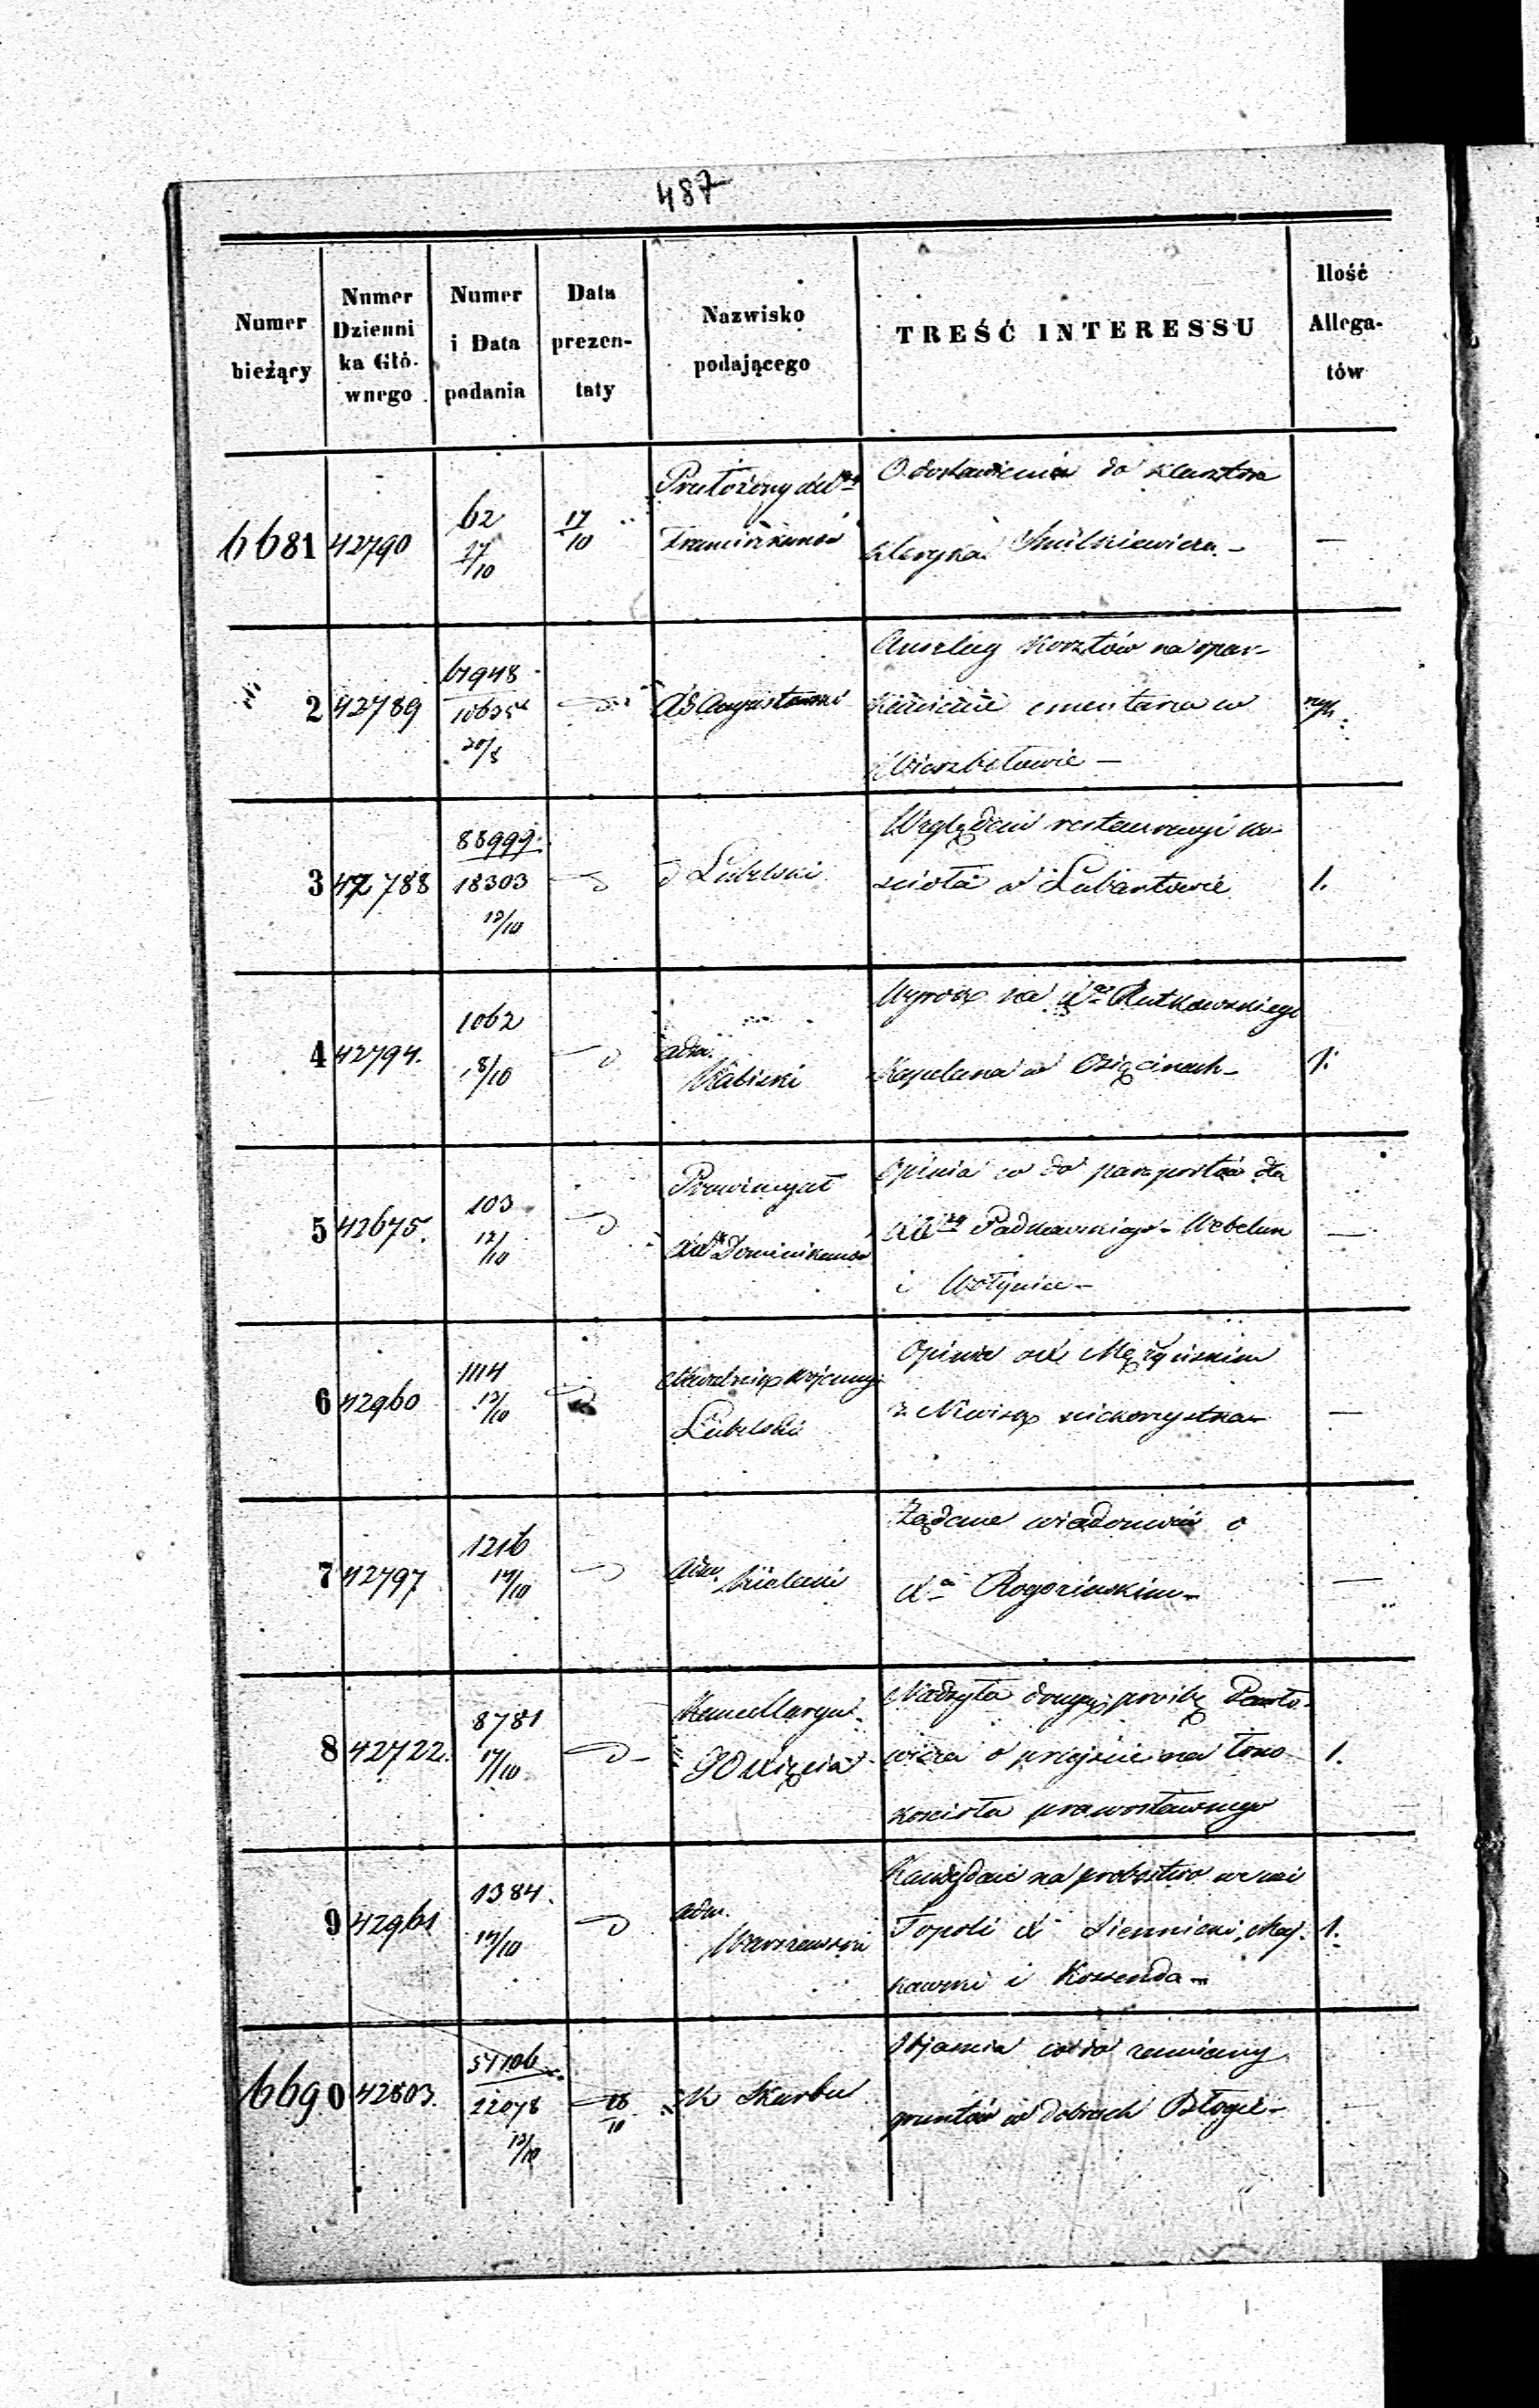 487
Numer bieżący
Numer Dzienni ka Głó- wnego
Numer i Data podania
Data prezen- taty
Nazwisko podającego
TREŚĆ INTERESSU
Ilość Allega- tów
6681 42790 62 17/10 17/10 Przełożony
Franciszkanów
O dostawienie do klasztoru
kleryka Smilkiewicza. —
2 42789 67948 20/8 Augustowski
Anszlag kosztów na opar-
kanienie cmentarza w
Wierzbołowie —
3 42788 88999 18303 12/10 d Lubelski
Względem restauracyi ko-
ścioła w Lubartowie 1.
4 42794. 1062 18/10 adm.
Wyrok na Rutkowskiego
Kapelana w Osięcinach — 1.
5 42675. 103 12/10 Prowincyał
Dominikanów
Opinia co do paszportów dla
i Wołyńca —
6 42960 1114 12/10 Naczelnik wojenny
Lubelski
Opinia o
—
7 42797 1216 14/10 adm. Kielecki
Żądanie wiadomości o
Rogozińskim — —
8 42722. 8781 17/10 Kancellarya
JO Księcia
Nadsyła drugą prośbę Pawło-
wicza o przejście na łono
kościoła prawosławnego 1.
9 42961 1384. 14/10 adm.
Warszawski
Kandydaci na probostwo we wsi
Topoli X Siennicki, Maj-
kawski i Kosenda — 1.
6690 42803. 54106 22078 12/10 18/10 K Skarbu
Objaśnia co do zamiany
gruntów w dobrach Błogie —